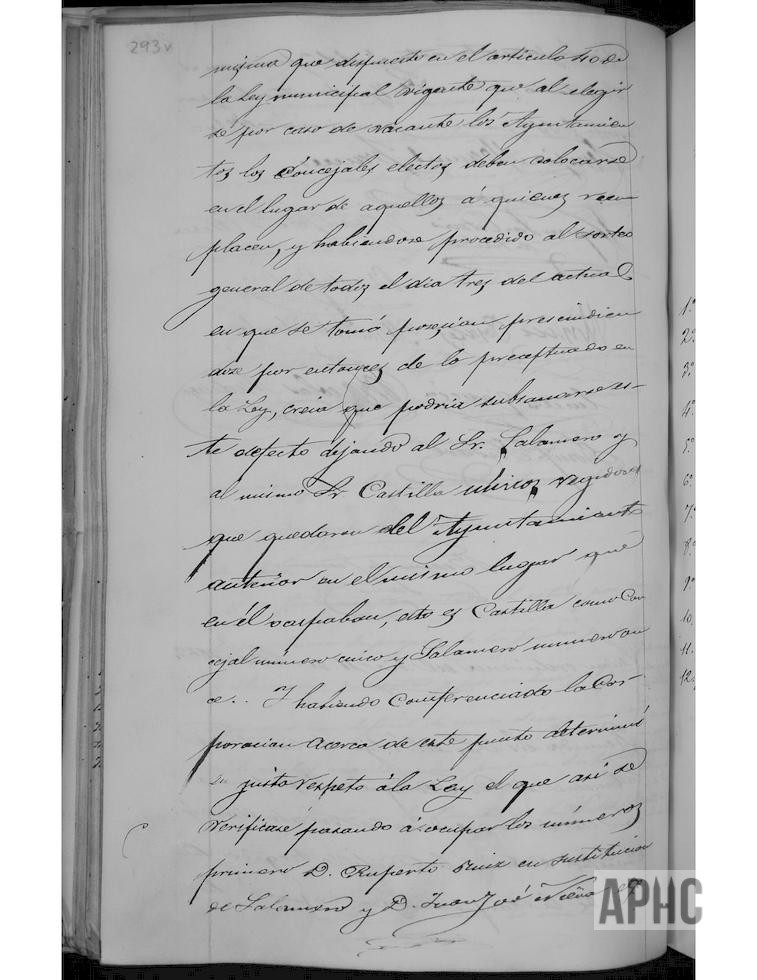 293v
misma que dispuesto en el articulo 40 de
la Ley municipal vigente que al elegir
se por caso de vacante los Ayuntamien
tos los Concejales electos deben colocarse
en el lugar de aquellos á quienes reem
placen, y habiendose procedido al sorteo
general de todos el dia tres del actual
en que se tomó posesion prescindien
dose por entonces de lo preceptuado en
la Ley, creia que podria subsanarse es-
te defecto dejando al Sr. Salamero y
al mismo Sr Castilla unicos regidores
que quedaron del Ayuntamiento
anterior en el mismo lugar que
en él ocupaban, esto es Castilla como Con
cejal número cinco y Salamero número on
ce.. Y habiendo conferenciado la Cor-
poracion acerca de este punto determinó
en justo respeto á la Ley el que asi se
verificase pasando á ocupar los números
primero D. Ruperto Ruiz en sustitucion
de Salamero y D. Juan José
1º
2º
3º
4º
5º
6º
7º
8º
9º
10.
11.
12.
APHC